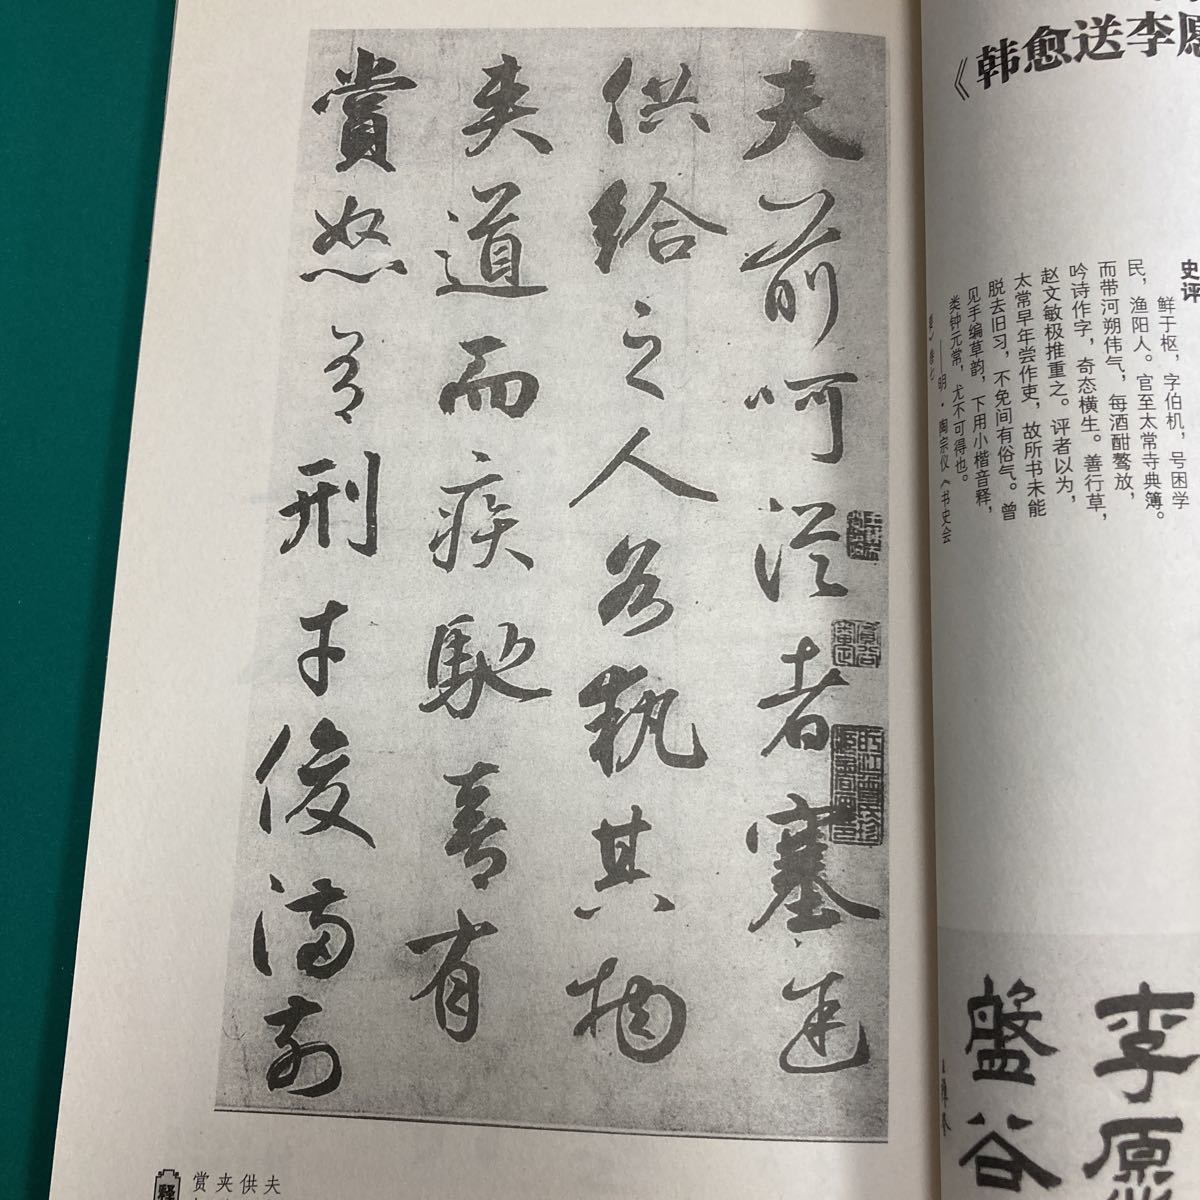 《韩愈送李愿
史评
鲜于枢，字伯机，号困学
民，渔阳人。官至太常寺典簿。
而带河朔伟气，每酒酣骜放，
吟诗作字，奇态横生。善行草，
赵文敏极推重之。评者以为，
太常早年尝作吏，故所书未能
脱去旧习，不免间有俗气。曾
见手编草韵，下用小楷音释，
类钟元常，尤不可得也。
——明·陶宗仪《书史会
要》卷七
李愿
盤谷
夫前呵从者塞途
供给之人各执其物
夹道而疾馳喜有
賞怒有刑才俊满前
释
夫
供
夹
赏